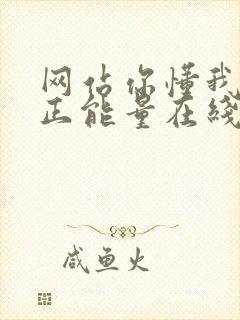 网佔你懂我
正能量在綫
咸鱼火